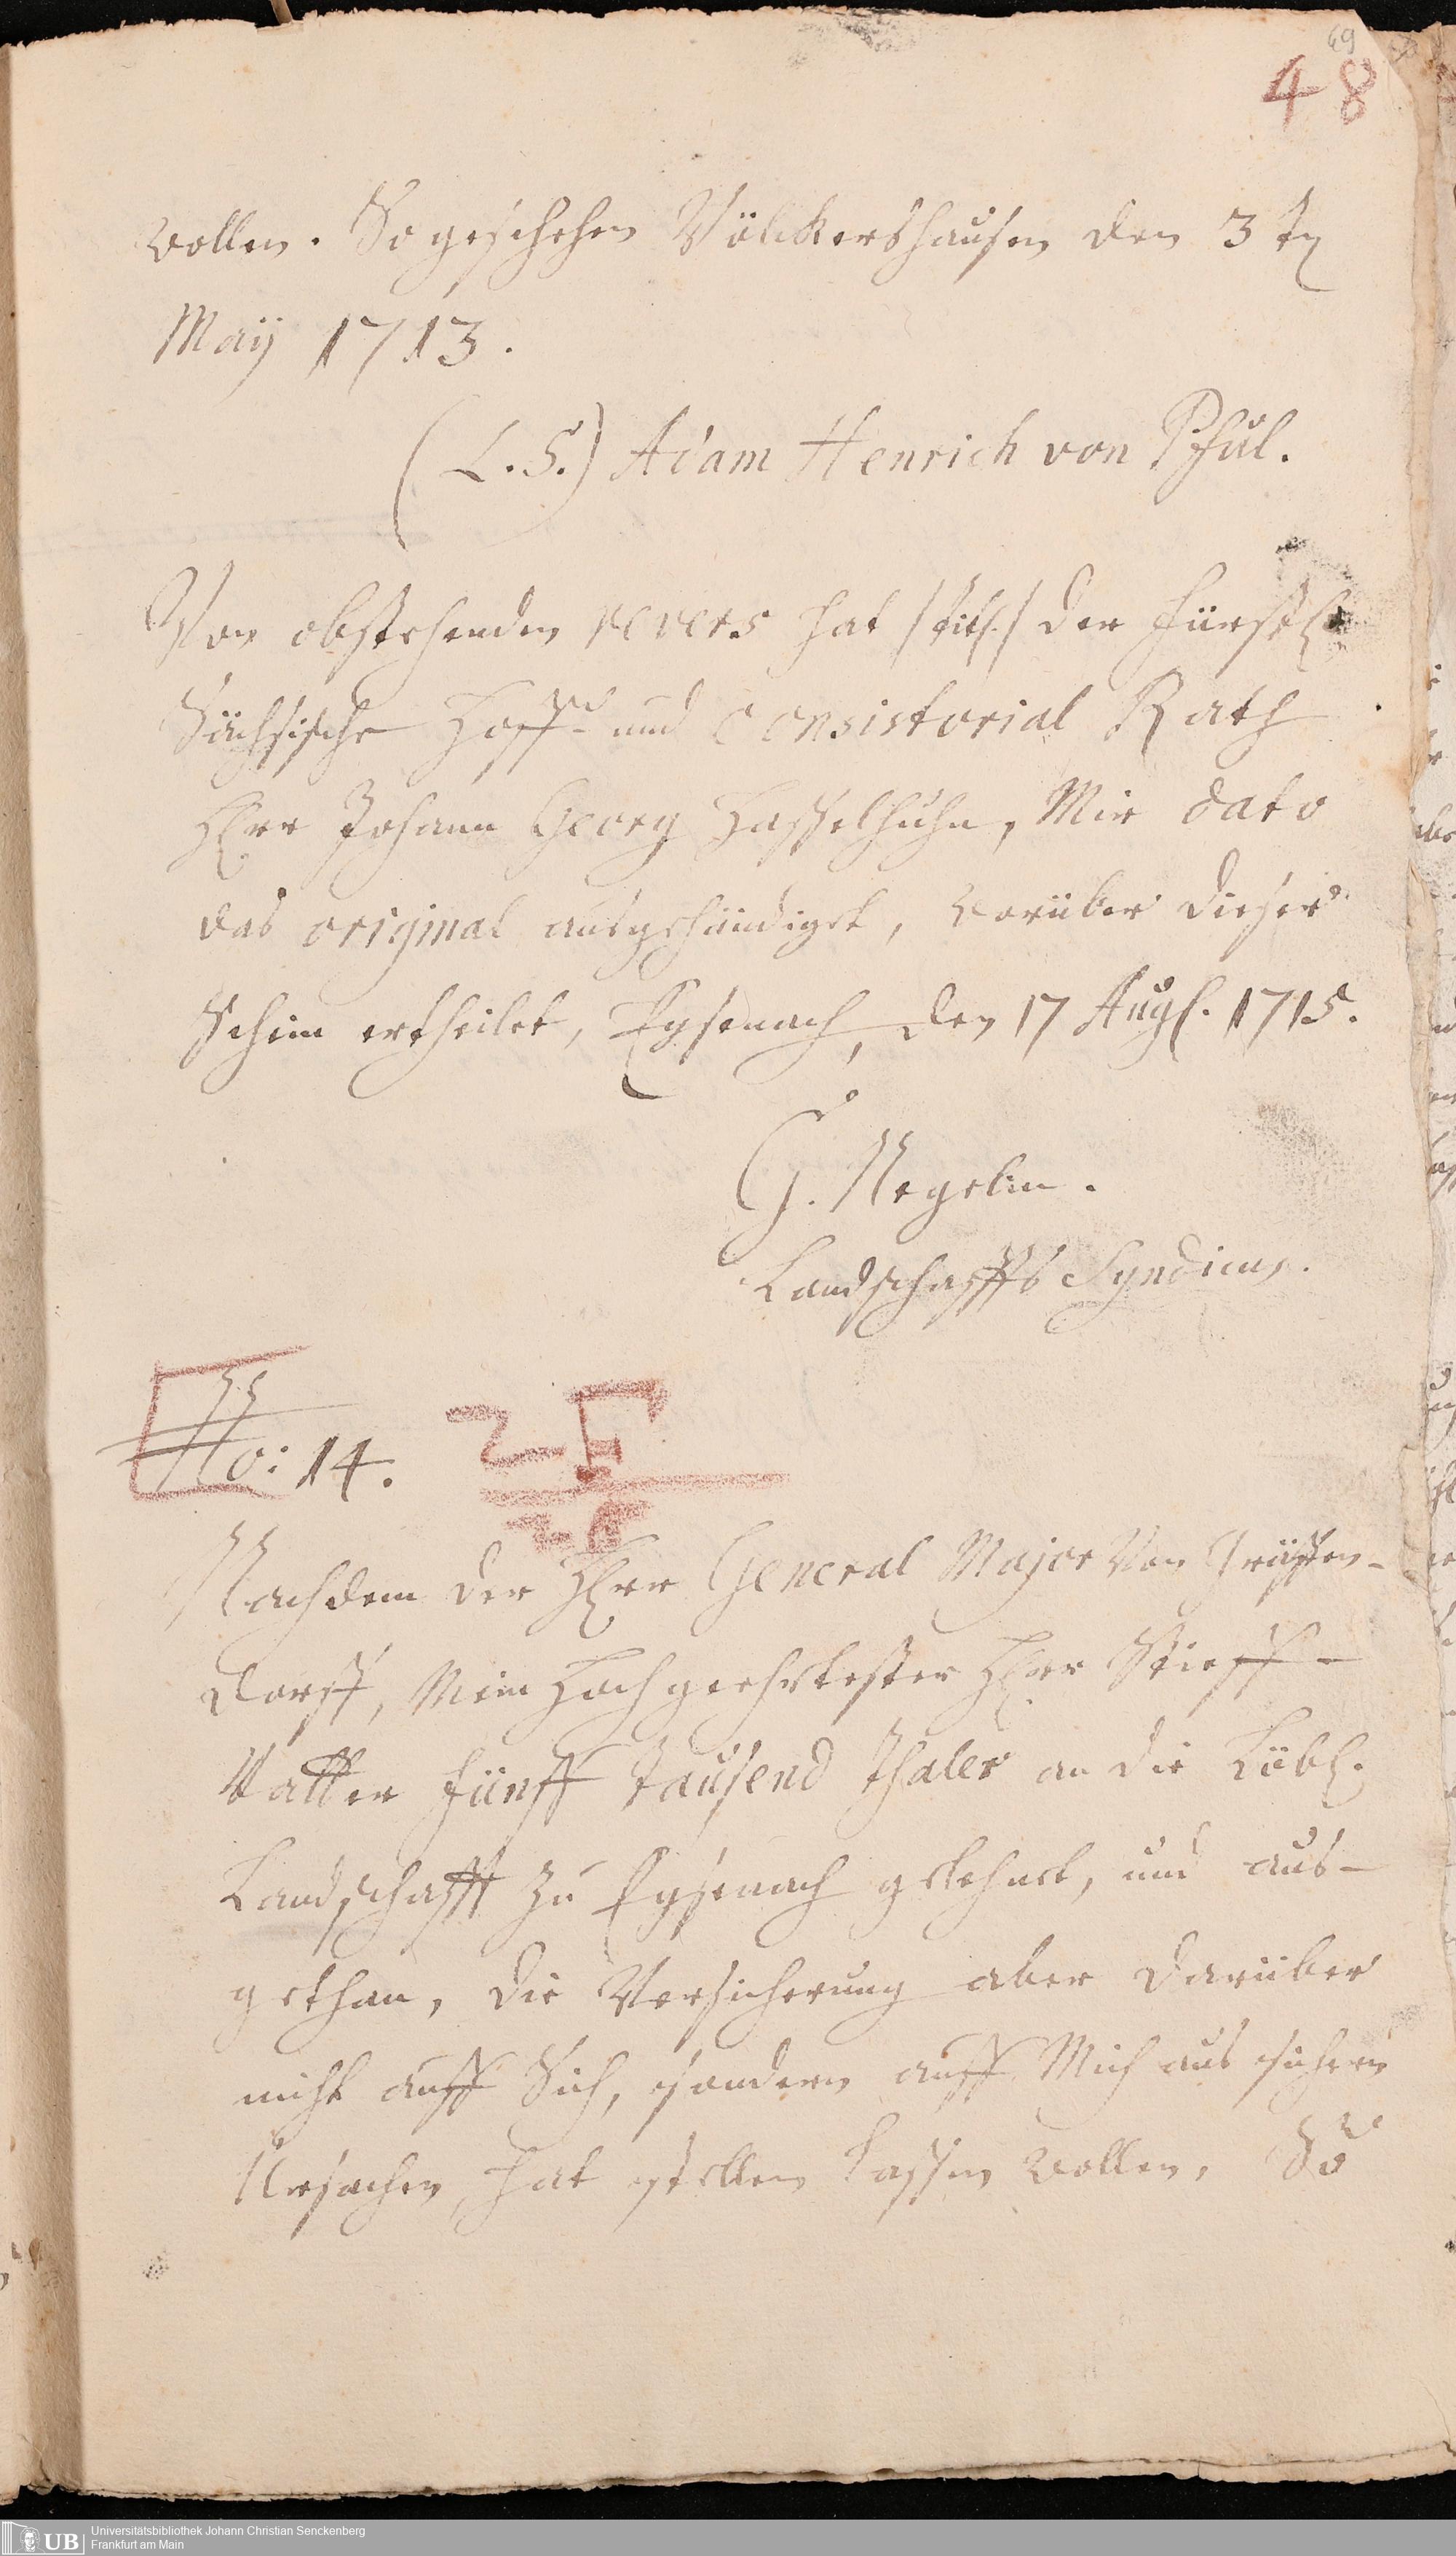 69
48
wollen. So geschehen Völckershausen den 3 t
Maÿ 1713.
(L. S.) Adam Henrich von Pful.
Von obstehenden revers hat /titl./ der Fürstl.
Sächsische Hoff- und Consistorial Rath
Herr Johann Georg Hasselhuhn, Mir dato
das original ausgehändigt, worüber dieser
Schein ertheilet, Eysenach, den 17 Aug. 1715.
G. Negelin.
Landschaffts Syndicus.
No: 14.
Nachdem der Herr General Major von
dorff, Mein Hochgeehrtester Herr Stieff-
Vatter fünff Tausend Thaler an die Löbl.
Landschafft zu Eysenach gelehnet, und aus-
gethan, die Versicherung aber darüber
nicht auff Sich, sondern auff Mich aus sichern
Ursachen hat stellen lassen wollen, So
UB Universitätsbibliothek Johann Christian Senckenberg
Frankfurt am Main